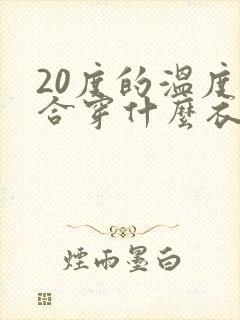 20度的溫度
合穿什麼衣
煙雨墨白